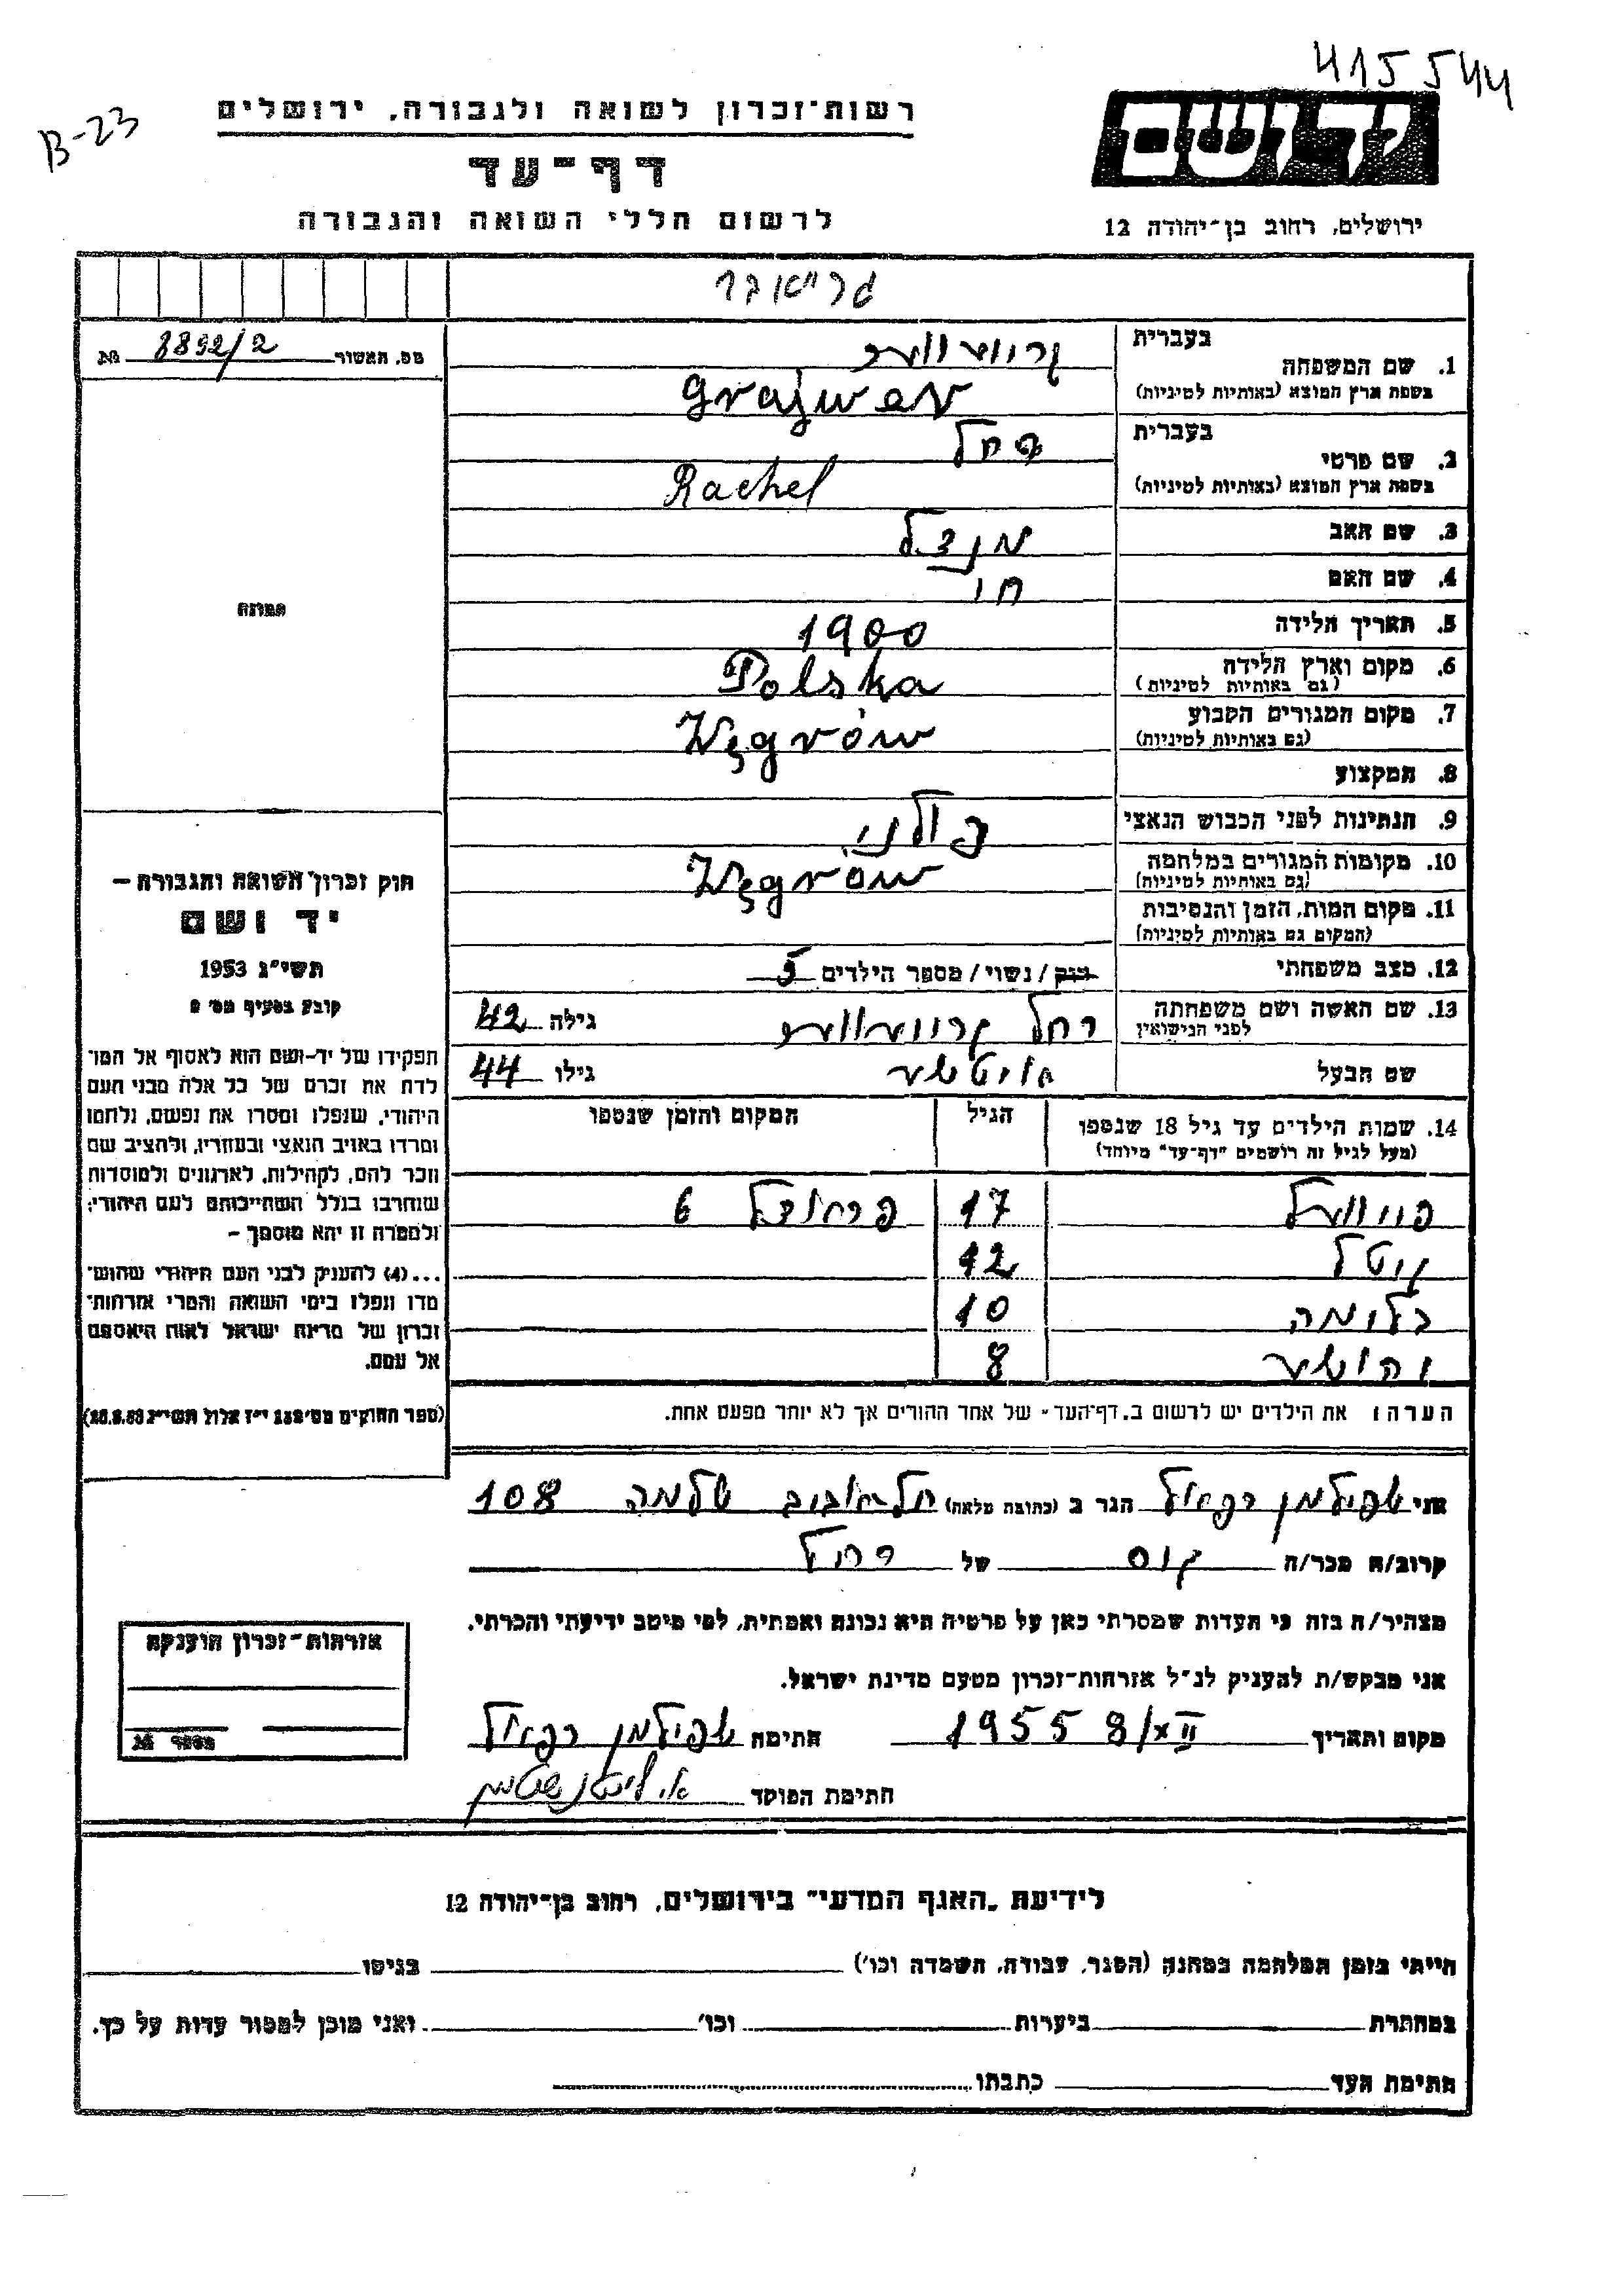 415544
B-23
רשות־זכרון לשואה ולגבורה, ירושלים
דף־עד
לרשום חללי השואה והגבורה
יד ושם
ירושלים, רחוב בן־יהודה 12
גריאבר
מס. תאשור 8892/2 №
בעברית
1. שם המשפחה
בשפת ארץ המוצא (באותיות לטיניות) Grajwer
בעברית רחל
2. שם פרטי
בשפת ארץ המוצא (באותיות לטיניות) Rachel
3. שם האב מנדל
4. שם האם
5. תאריך הלידה 1900
6. מקום וארץ הלידה Polska
(גם באותיות לטיניות)
7. מקום המגורים הקבוע Węgrów
(גם באותיות לטיניות)
8. המקצוע
9. הנתינות לפני הכבוש הנאצי פולני
10. מקומות המגורים במלחמה Węgrów
(גם באותיות לטיניות)
11. מקום המות, הזמן והנסיבות
(המקום גם באותיות לטיניות)
12. מצב משפחתי רווק / נשוי / מספר הילדים 5
13. שם האשה ושם משפחתה רחל גילה 42
לפני הנישואין
שם הבעל גילו 44
14. שמות הילדים עד גיל 18 שנספו הגיל המקום והזמן שנספו
(מעל לגיל זה רושמים "דף־עד" מיוחד)
17
גיטל 12
בלומה 10
8
הערה: את הילדים יש לרשום ב„דף־העד" של אחד ההורים אך לא יותר מפעם אחת.
תמונה
חוק זכרון השואה והגבורה –
יד ושם
תשי"ג 1953
קובע בסעיף מס' 2
תפקידו של יד-ושם הוא לאסוף אל המו־
לדת את זכרם של כל אלה מבני העם
היהודי, שנפלו ומסרו את נפשם, נלחמו
ומרדו באויב הנאצי ובעוזריו, ולהציב שם
וזכר להם, לקהילות, לארגונים ולמוסדות
שנחרבו בגלל השתייכותם לעם היהודי;
ולמטרה זו יהא מוסמך –
...(4) להעניק לבני העם היהודי שהוש־
מדו ונפלו בימי השואה והמרי אזרחות־
זכרון של מדינת ישראל לאות היאספם
אל עמם.
(ספר החוקים מס' 132 י"ז אלול תשי"ג 28.8.53)
אני שפילמן רפאל הגר ב (כתובת מלאה) תל אביב שלמה 108
קרוב/ה מכר/ה גיס של רחל
מצהיר/ה בזה כי העדות שמסרתי כאן על פרטיה היא נכונה ואמתית, לפי מיטב ידיעתי והכרתי.
אני מבקש/ת להעניק לנ"ל אזרחות־זכרון מטעם מדינת ישראל.
מקום ותאריך 8/XII 1955 חתימה שפילמן רפאל
חתימת הפוקד
אזרחות־זכרון הוענקה
מספר №
לידיעת „האגף המדעי" בירושלים, רחוב בן־יהודה 12
הייתי בזמן המלחמה במחנה (הסגר, עבודה, השמדה וכו') בגיטו
במחתרת ביערות וכו' ואני מוכן למסור עדות על כך.
חתימת העד כתבתו